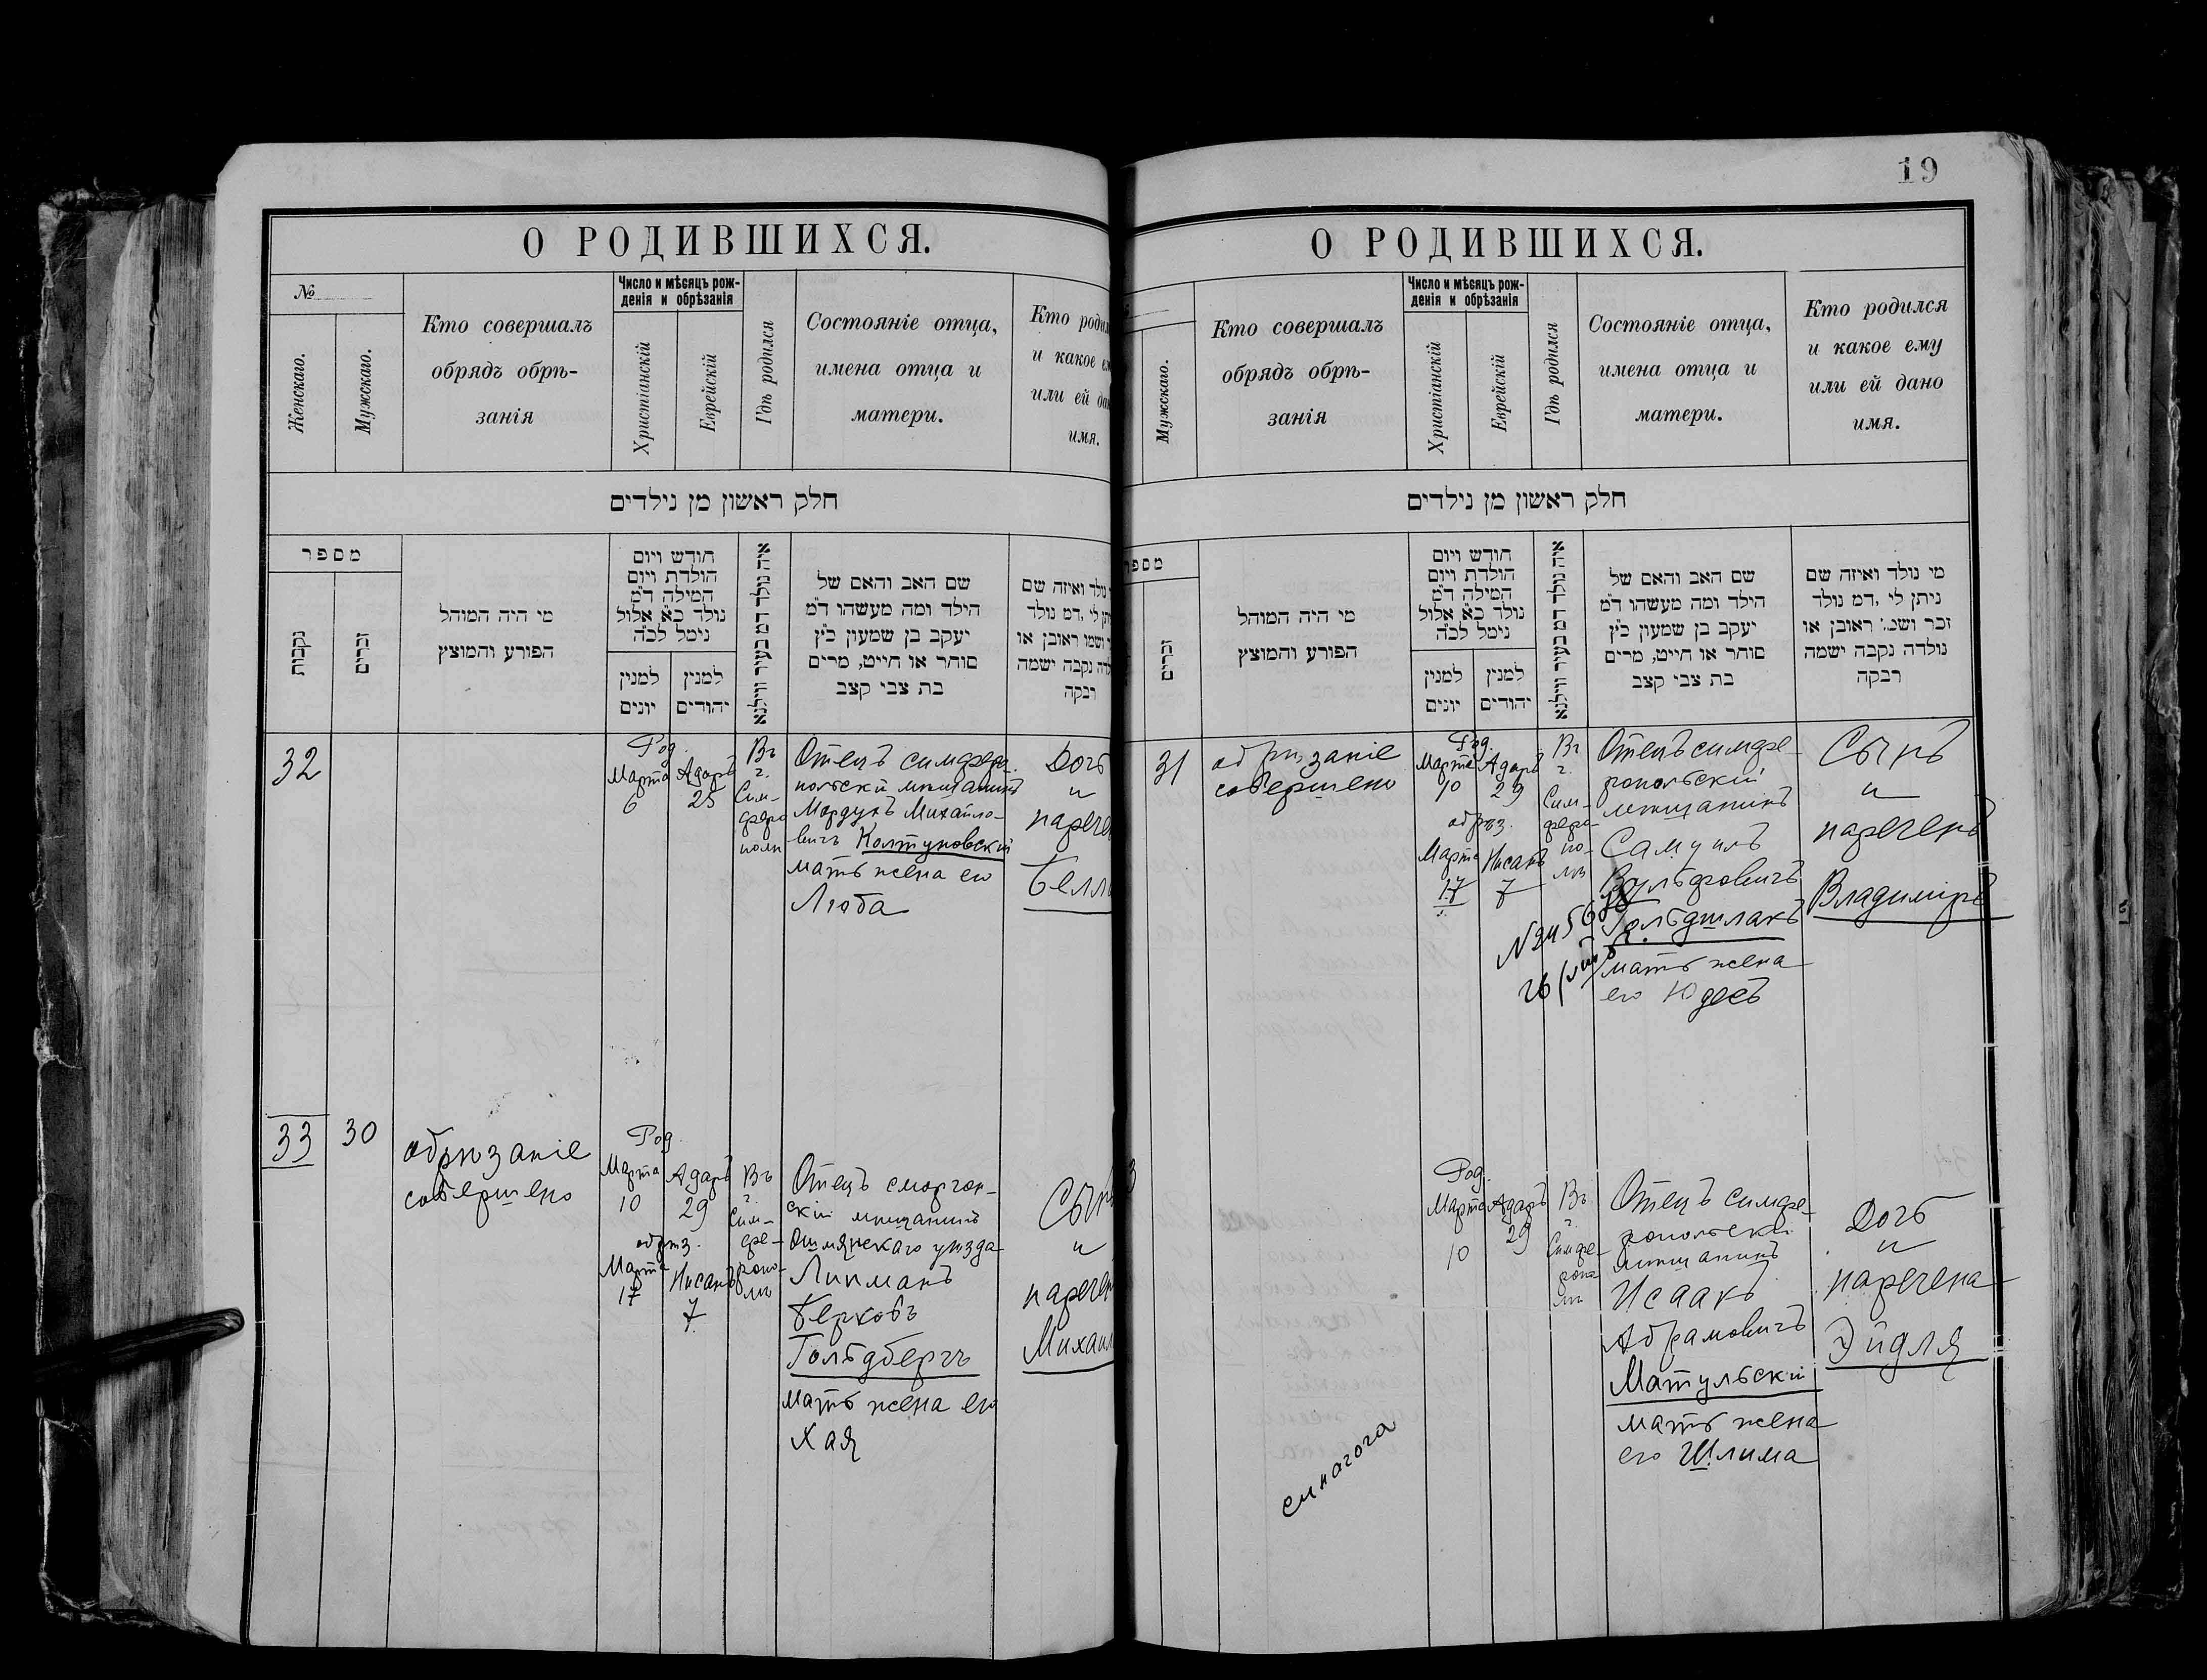 О РОДИВШИХСЯ.
№
Женскаго.
Мужскаго.
Кто совершалъ
обрядъ обрѣ-
занія
Число и мѣсяцъ рож-
денія и обрѣзанія
Христіанскій
Еврейскій
Гдѣ родился
Состояніе отца,
имена отца и
матери.
Кто роди
и какое ем
или ей дан
имя.
חלק ראשון מן נילדים
מספר
נקבות
זכרים
מי היה המוהל
הפורע והמוצץ
חודש ויום
הולדת ויום
המילה ד״מ
נולד כ״א אלול
נימל לכ״ה
למנין
יונים
למנין
יהודים
איה נולד דמ בעיר ווילנא
שם האב והאם של
הילד ומה מעשהו ד״מ
יעקב בן שמעון כ״ץ
סוחר או חייט, מרים
בת צבי קצב
נולד ואיזה שם
תן לי ,דמ נולד
ושמו ראובן או
לדה נקבה ישמה
רבקה
32
Род.
Марта
6
Адаръ
25
Въ
г.
Сим-
феро
поли
Отецъ симферо-
польскій мѣщанинъ
Мордухъ Михайло-
вичъ Колтуновскій
мать жена его
Люба
Дочь
и
нарече
Белла
33
30
обрѣзаніе
совершено
Род.
Марта
10
Адаръ
29
обрѣз.
Марта
17
Нисанъ
7
Въ
г.
Сим-
фе-
ропо-
лѣ
Отецъ сморгон-
скій мѣщанинъ
Ошмянскаго уѣзда
Липманъ
Берковъ
Гольдбергъ
мать жена его
Хая
Сынъ
и
наречен
Михаил
19
О РОДИВШИХСЯ.
Мужскаго.
Кто совершалъ
обрядъ обрѣ-
занія
Число и мѣсяцъ рож-
денія и обрѣзанія
Христіанскій
Еврейскій
Гдѣ родился
Состояніе отца,
имена отца и
матери.
Кто родился
и какое ему
или ей дано
имя.
חלק ראשון מן נילדים
מספר
זכרים
מי היה המוהל
הפורע והמוצץ
חודש ויום
הולדת ויום
המילה ד״מ
נולד כ״א אלול
נימל לכ״ה
למנין
יונים
למנין
יהודים
איה נולד דמ בעיר ווילנא
שם האב והאם של
הילד ומה מעשהו ד״מ
יעקב בן שמעון כ״ץ
סוחר או חייט, מרים
בת צבי קצב
מי נולד ואיזה שם
ניתן לי ,דמ נולד
זכר ושמו ראובן או
נולדה נקבה ישמה
רבקה
31
обрѣзаніе
совершено
Род.
Марта
10
Адаръ
29
обрѣз.
Марта
17
Нисанъ
7
Въ
г.
Сим-
феро-
по-
лѣ
Отецъ симфе-
ропольскій
мѣщанинъ
Самуилъ
Вульфовичъ
Гольдшлакъ
мать жена
его Юдесь
Сынъ
и
нареченъ
Владиміръ
3
Род.
Марта
10
Адаръ
29
Въ
г.
Симфе-
ропо
лѣ
Отецъ симфе-
ропольскій
мѣщанинъ
Исаакъ
Абрамовичъ
Матульскій
мать жена
его Шлима
Дочь
и
наречена
Эйдля
синагога